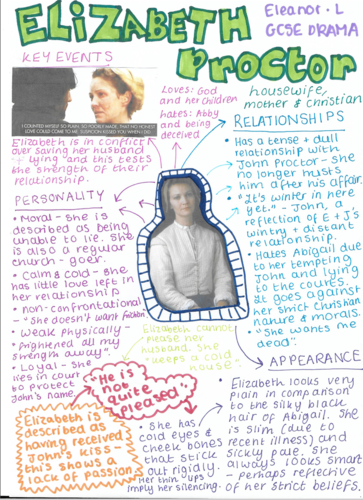 ELIZABETH
Proctor
Eleanor . L
GCSE DRAMA
KEY EVENTS
I COUNTED MYSELF SO PLAIN, SO POORLY MADE, THAT NO HONEST
LOVE COULD COME TO ME. SUSPICION KISSED YOU WHEN I DID.
Elizabeth is in conflict
over saving her husband
+ lying and this tests
the strength of their
relationship.
Loves: God
and her children
hates: Abby
and being
deceived
housewife,
mother & christian
RELATIONSHIPS
• Has a tense + dull
relationship with
John Proctor - she
no longer trusts
him after his affair.
• "It's winter in here
yet." - John, a
reflection of E+J's
wintry + distant
relationship.
• Hates Abigail due
to her tempting
John and lying
to the courts.
It goes against
her strict Christian
nature & morals.
• "She wants me
dead".
PERSONALITY
• Moral - she is
described as being
unable to lie. She
is also a regular
church-goer.
• Calm & cold - she
has little love left in
her relationship
• non-confrontational
- "She doesn't want
• Weak physically -
"frightened all my
strength away".
• Loyal - she
lies in court
to protect
John's name.
Elizabeth cannot
please her
husband. She
"keeps a cold
house".
"He is
not
quite
pleased".
Elizabeth is
described as
having received
John's kiss -
this shows
lack of passion.
• She has
cold eyes &
cheek bones
that stick
out rigidly.
Her thin lips
imply her silencing.
APPEARANCE
• Elizabeth looks very
plain in comparison
to the silky black
hair of Abigail. She
is slim (due to
recent illness) and
sickly pale. She
always looks smart
- perhaps reflective
of her strict beliefs.